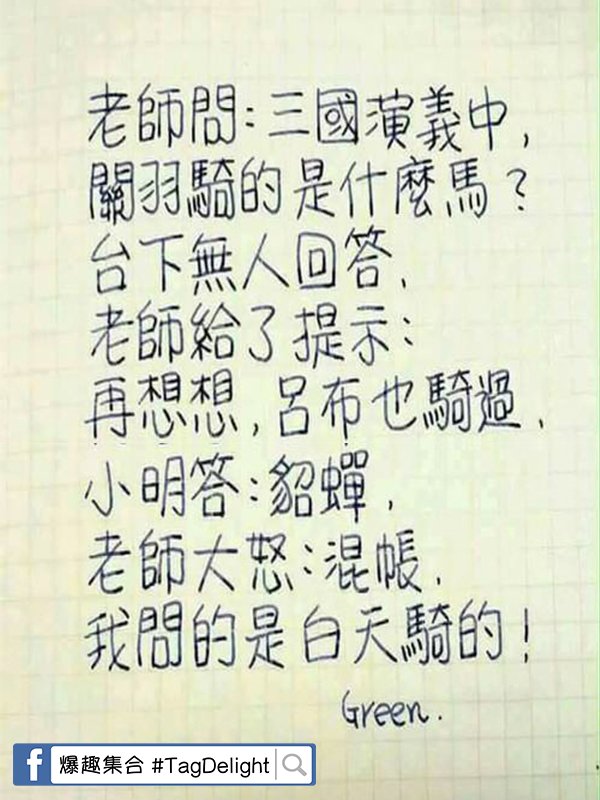 老師問:三國演義中,
關羽騎的是什麼馬?
台下無人回答.
老師給了提示:
再想想,呂布也騎過.
小明答:貂蟬.
老師大怒:混帳.
我問的是白天騎的!
Green.
f 爆趣集合 #TagDelight